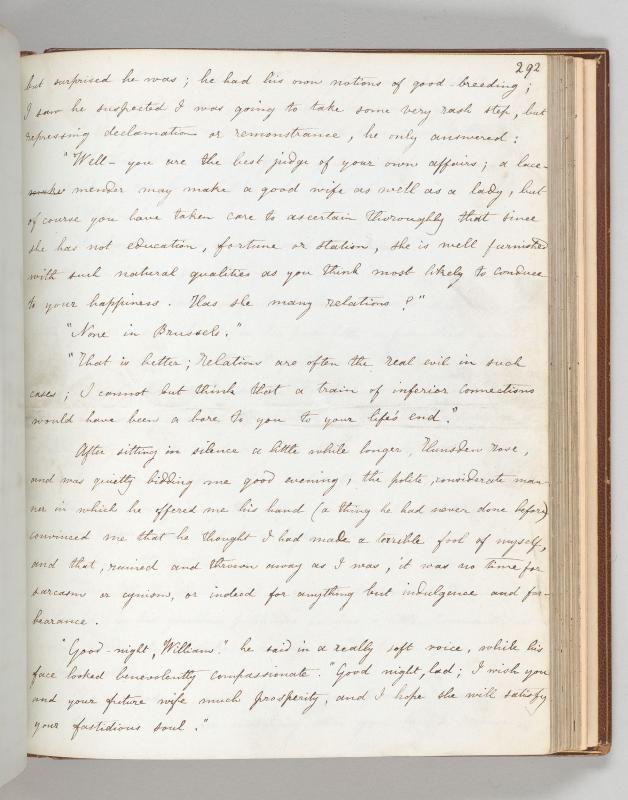 292
but surprised he was; he had his own notions of good-breeding;
I saw he suspected I was going to take some very rash step, but
repressing declamation or remonstrance, he only answered:
"Well - you are the best judge of your own affairs; a lace-
make mender may make a good wife as well as a lady, but
of course you have taken care to ascertain thoroughly that since
she has not education, fortune or station, she is well furnished
with such natural qualities as you think most likely to conduce
to your happiness. Has she many relations?"
"None in Brussels."
"That is better; Relations are often the real evil in such
cases; I cannot but think that a train of inferior connections
would have been a bore to you to your life's end."
After sitting in silence a little while longer, Hunsden rose,
and was quietly bidding me good evening; the polite, considerate man-
ner in which he offered me his hand (a thing he had never done before)
convinced me that he thought I had made a terrible fool of myself,
and that, ruined and thrown away as I was, it was no time for
sarcasm or cynism, or indeed for anything but indulgence and for-
bearance.
"Good-night, William." he said in a really soft voice, while his
face looked benevolently compassionate. "Good night, lad; I wish you
and your future wife much prosperity, and I hope she will satisfy
your fastidious soul."